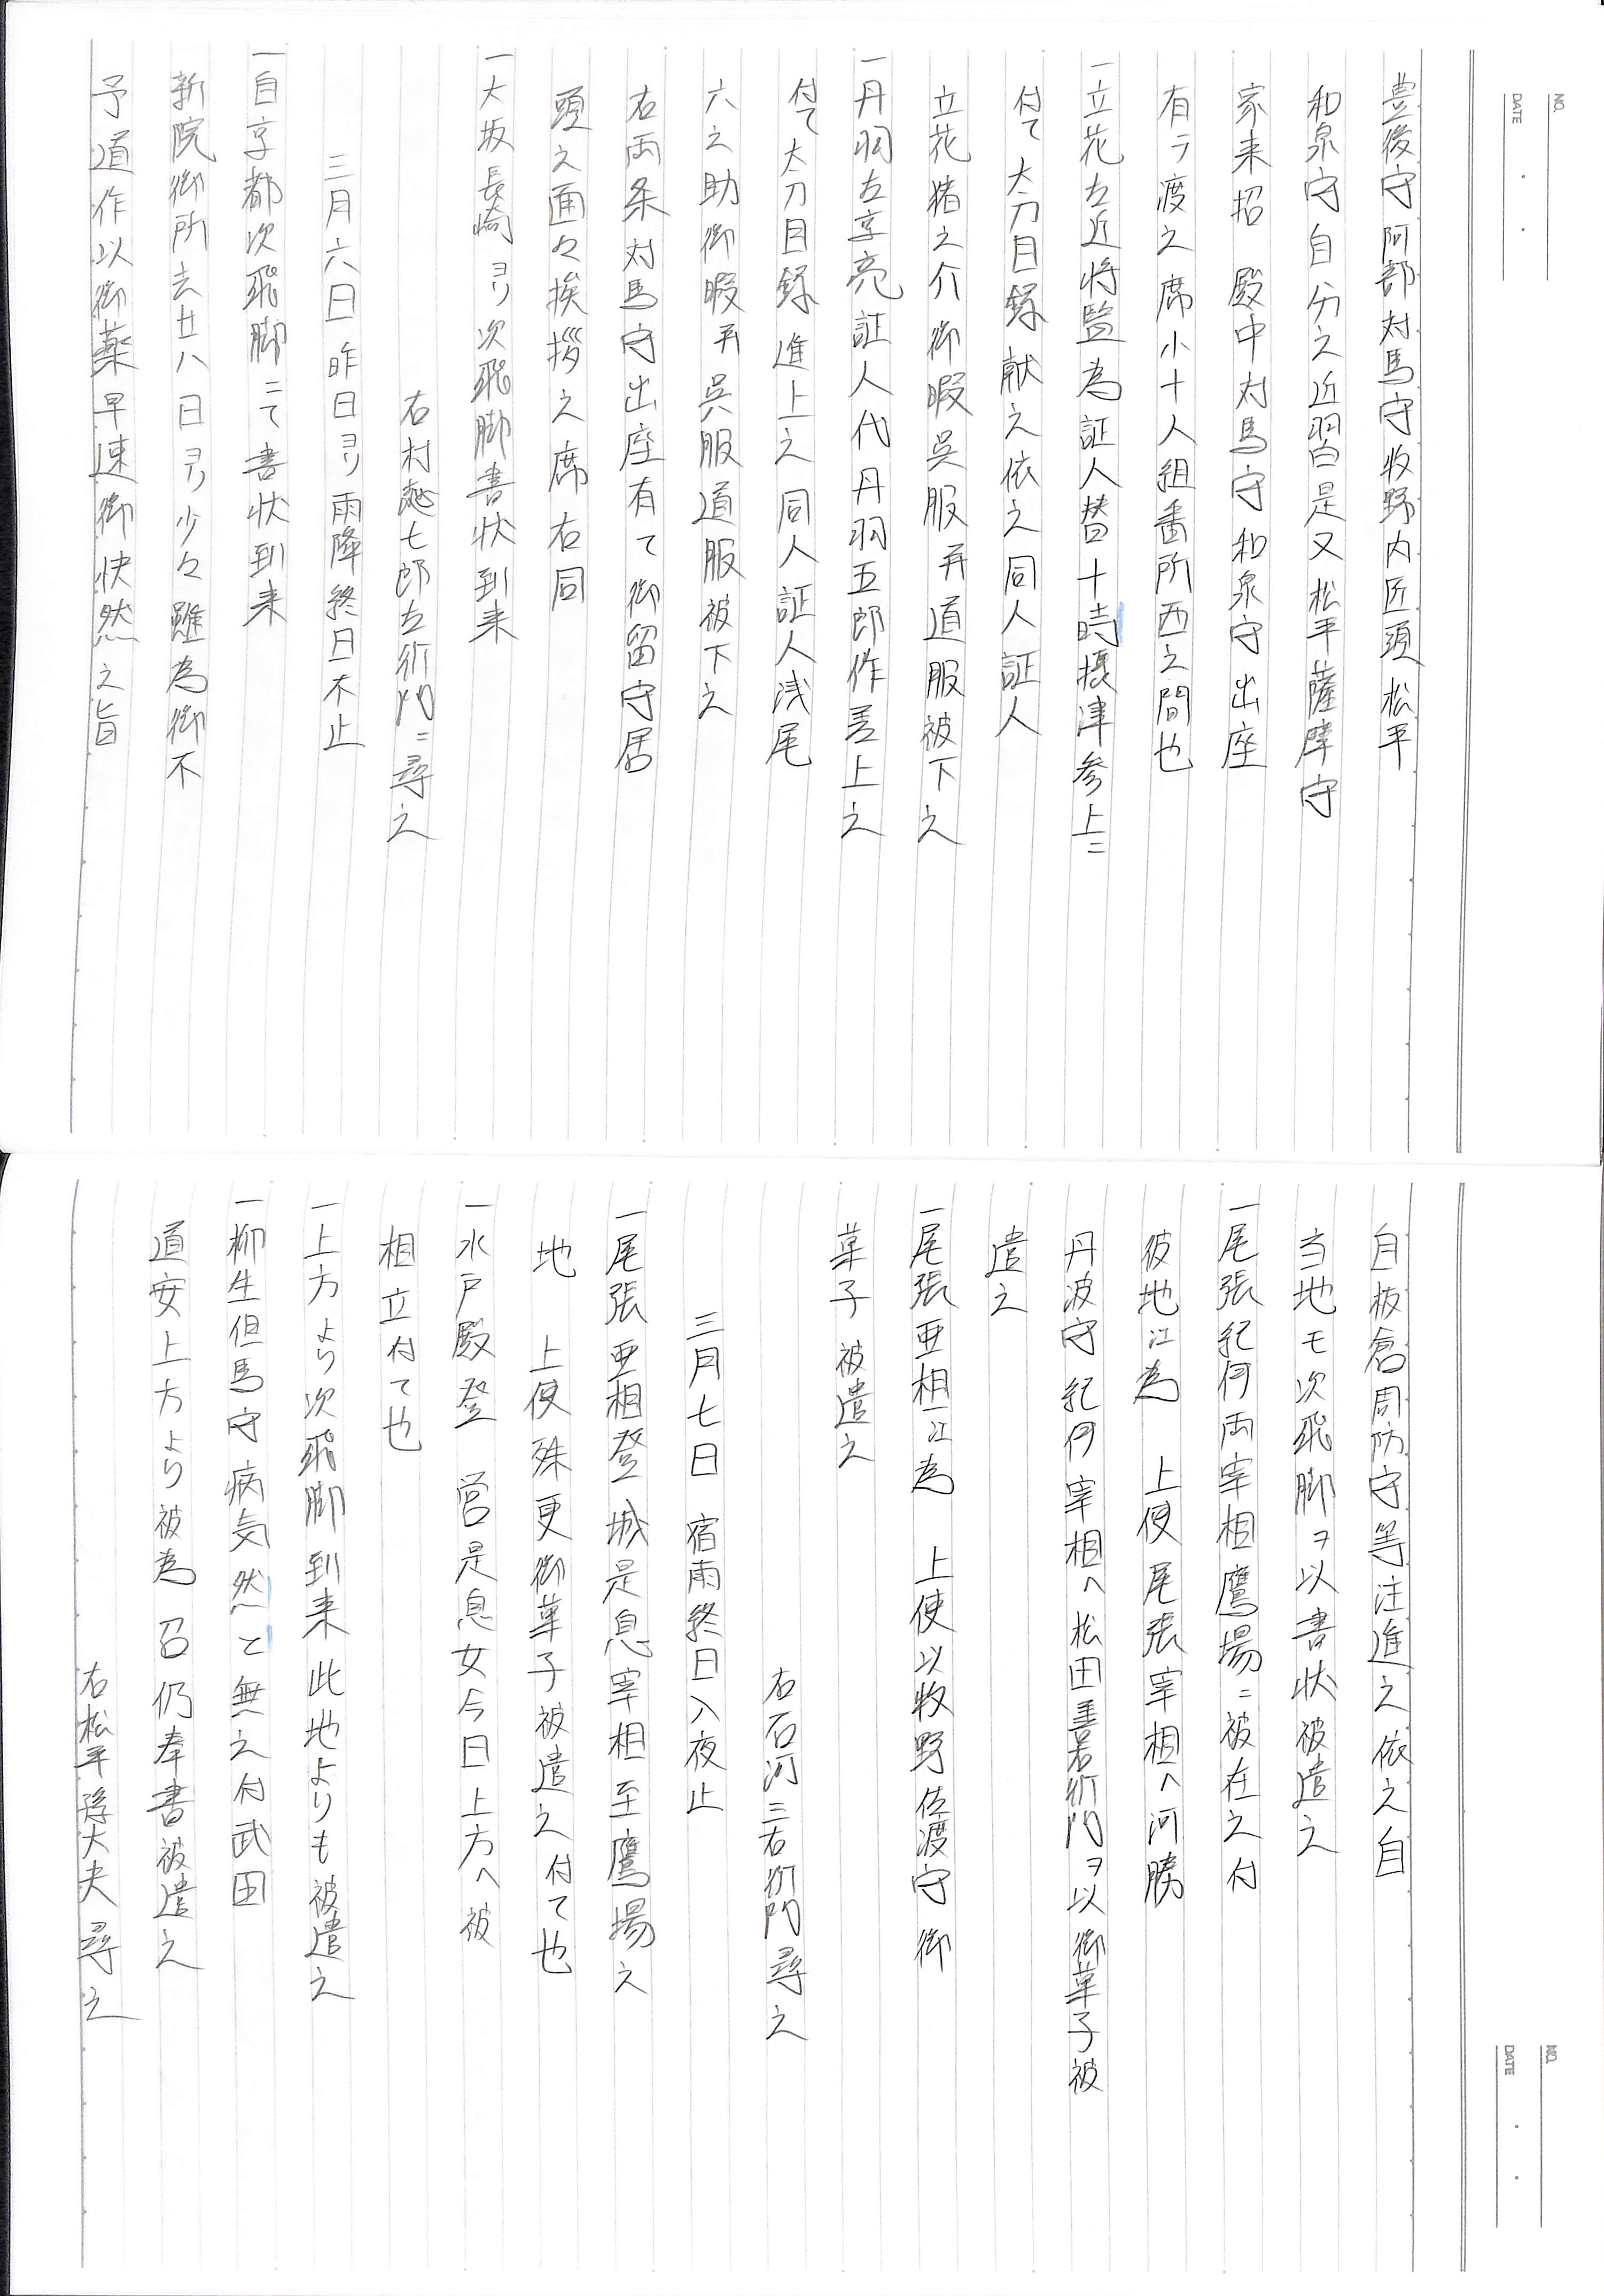 NO.
DATE
豊後守阿部対馬守牧野内匠頭松平
和泉守自分之近習是又松平薩摩守
家来招 殿中対馬守和泉守出座
有ラ渡之席小十人組番所西之間也
一立花左近将監為証人替十時摂津参上ニ
付て太刀目録献之依之同人証人
立花猪之介御暇呉服并道服被下之
一丹羽左京亮証人代丹羽五郎作差上之
付て太刀目録進上之同人証人浅尾
六之助御暇并呉服道服被下之
右両条対馬守出座有て御留守居
頭之面々挨拶之席右同
一大坂長崎ヨリ次飛脚書状到来
右村越七郎左衛門ニ尋之
三月六日 昨日ヨリ雨降終日不止
一自京都次飛脚ニて書状到来
新院御所去廿八日ヨリ少々雖為御不
予道作以御薬早速御快然之旨
NO.
DATE
自板倉周防守等注進之依之自
当地モ次飛脚ヲ以書状被遣之
一尾張紀伊両宰相鷹場ニ被在之付
彼地江為 上使尾張宰相へ河勝
丹波守紀伊宰相へ松田善右衛門ヲ以御菓子被
遣之
一尾張亜相江為 上使以牧野佐渡守御
菓子被遣之
右石河三右衛門尋之
三月七日 宿雨終日入夜止
一尾張亜相登城是息宰相至鷹場之
地 上使殊更御菓子被遣之付て也
一水戸殿登 営是息女今日上方へ被
相立付て也
一上方より次飛脚到来此地よりも被遣之
一柳生但馬守病気然と無之付武田
道安上方より被為 召仍奉書被遣之
右松平隼大夫尋之